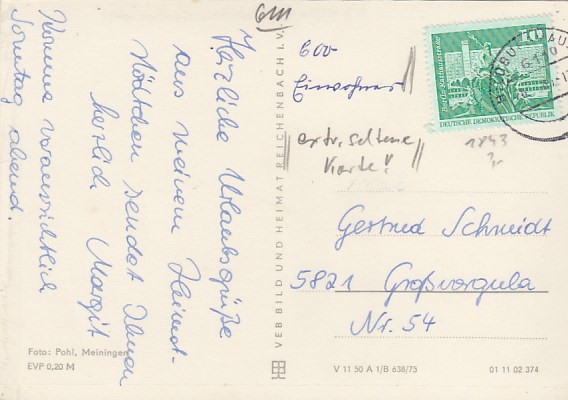 Herzliche Urlaubsgrüße
aus meinem Heimat-
städtchen sendet Ihnen
herzlich Margit
Komme voraussichtlich
Sonntag abend.
Foto: Pohl, Meiningen
EVP 0,20 M
VEB BILD UND HEIMAT REICHENBACH I. V.
600
Einwohner
extr. seltene
Karte!
10
Berlin, Rathausstraße
DEUTSCHE DEMOKRATISCHE REPUBLIK
1843
Gertrud Schmidt
5821 Großvargula
Nr. 54
V 11 50 A 1/B 638/75
01 11 02 374